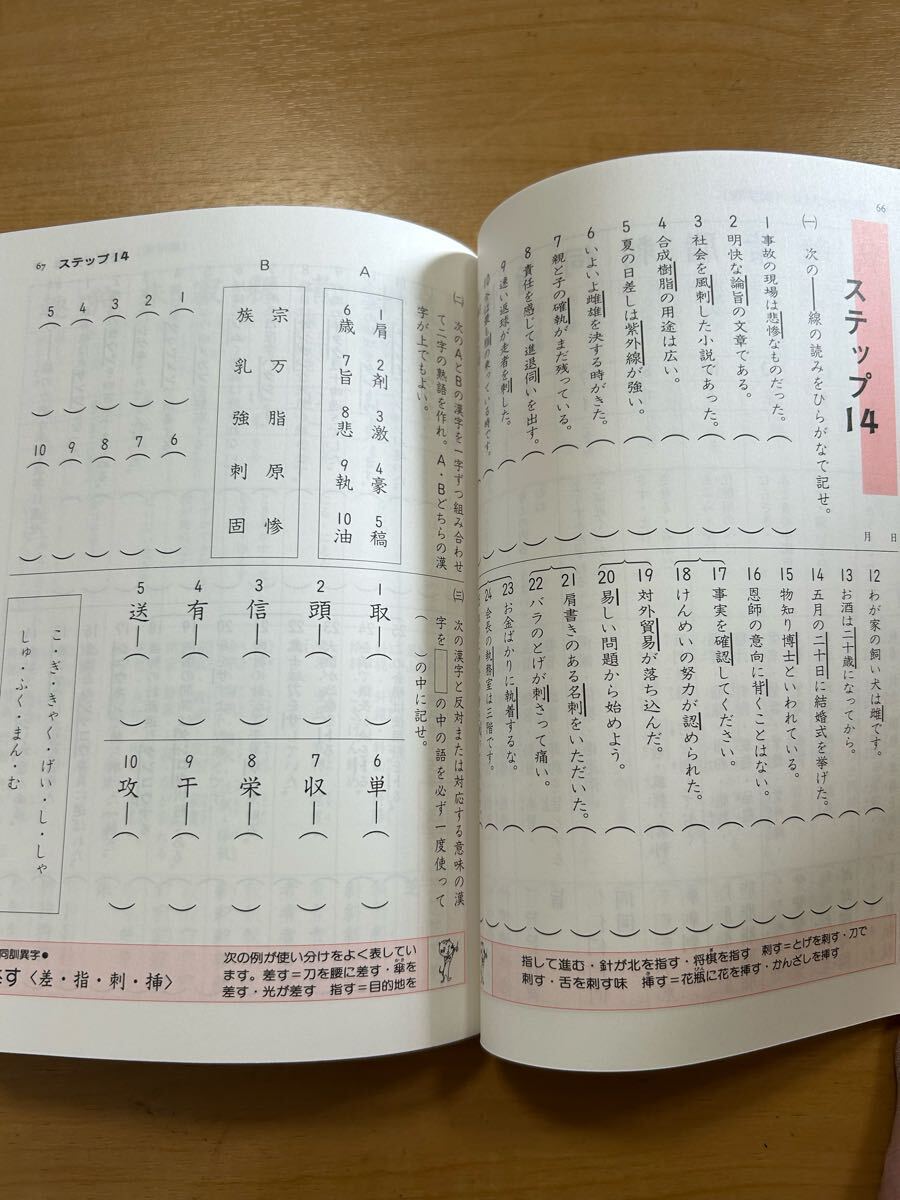 66
ステップ14
月　日
㈠　次の――線の読みをひらがなで記せ。
1 事故の現場は悲惨なものだった。（　）
2 明快な論旨の文章である。（　）
3 社会を風刺した小説であった。（　）
4 合成樹脂の用途は広い。（　）
5 夏の日差しは紫外線が強い。（　）
6 いよいよ雌雄を決する時がきた。（　）
7 親と子の確執がまだ残っている。（　）
8 責任を感じて進退伺いを出す。（　）
9 速い返球が走者を刺した。（　）
12 わが家の飼い犬は雌です。（　）
13 お酒は二十歳になってから。（　）
14 五月の二十日に結婚式を挙げた。（　）
15 物知り博士といわれている。（　）
16 恩師の意向に背くことはない。（　）
17 事実を確認してください。（　）
18 けんめいの努力が認められた。（　）
19 対外貿易が落ち込んだ。（　）
20 易しい問題から始めよう。（　）
21 肩書きのある名刺をいただいた。（　）
22 バラのとげが刺さって痛い。（　）
23 お金ばかりに執着するな。（　）
24 会長の執務室は三階です。（　）
指して進む・針が北を指す・将棋を指す　刺す＝とげを刺す・刀で
刺す・舌を刺す味　挿す＝花瓶に花を挿す・かんざしを挿す
67 ステップ14
㈡　次のAとBの漢字を一字ずつ組み合わせ
て二字の熟語を作れ。A・Bどちらの漢
字が上でもよい。
A
1 肩　2 剤　3 激　4 豪　5 稿
6 歳　7 旨　8 悲　9 執　10 油
B
宗　万　脂　原　惨
族　乳　強　刺　固
1（　）
2（　）
3（　）
4（　）
5（　）
6（　）
7（　）
8（　）
9（　）
10（　）
㈢　次の漢字と反対または対応する意味の漢
字を□の中の語を必ず一度使って
（　）の中に記せ。
1 取―（　）
2 頭―（　）
3 信―（　）
4 有―（　）
5 送―（　）
6 単―（　）
7 収―（　）
8 栄―（　）
9 干―（　）
10 攻―（　）
こ・ぎ・きゃく・げい・し・しゃ
しゅ・ふく・まん・む
同訓異字●
す〈差・指・刺・挿〉
次の例が使い分けをよく表してい
ます。差す＝刀を腰に差す・傘を
差す・光が差す　指す＝目的地を